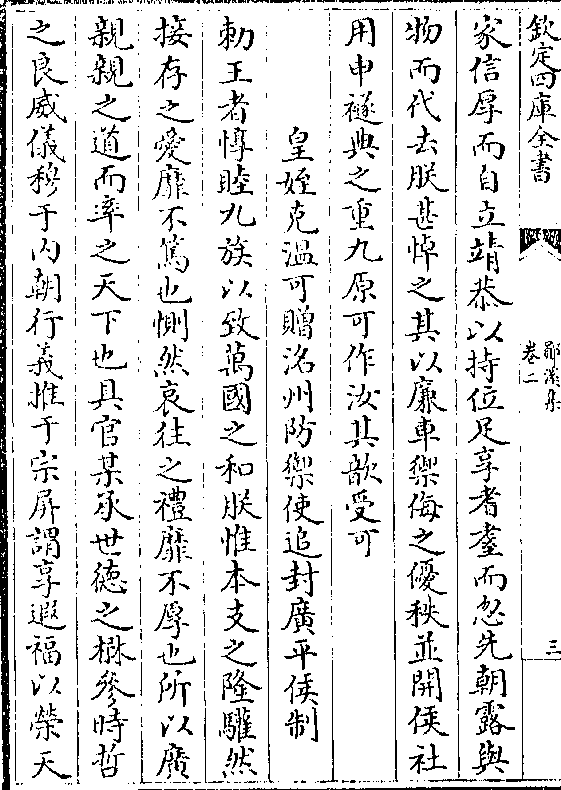 欽定四庫全書
鄖溪集
卷二
三
家信厚而自立靖恭以持位足享耆耋而忽先朝露與
物而代去朕甚悼之其以廉車禦侮之優秩並開侯社
用申襚典之重九原可作汝其歆受可
皇姪克温可贈洺州防禦使追封廣平侯制
勅王者惇睦九族以致萬國之和朕惟本支之隆驩然
接存之愛靡不篤也惻然哀往之禮靡不厚也所以廣
親親之道而率之天下也具官某承世德之楙參時哲
之良威儀穆于内朝行義推于宗屏謂享遐福以榮天